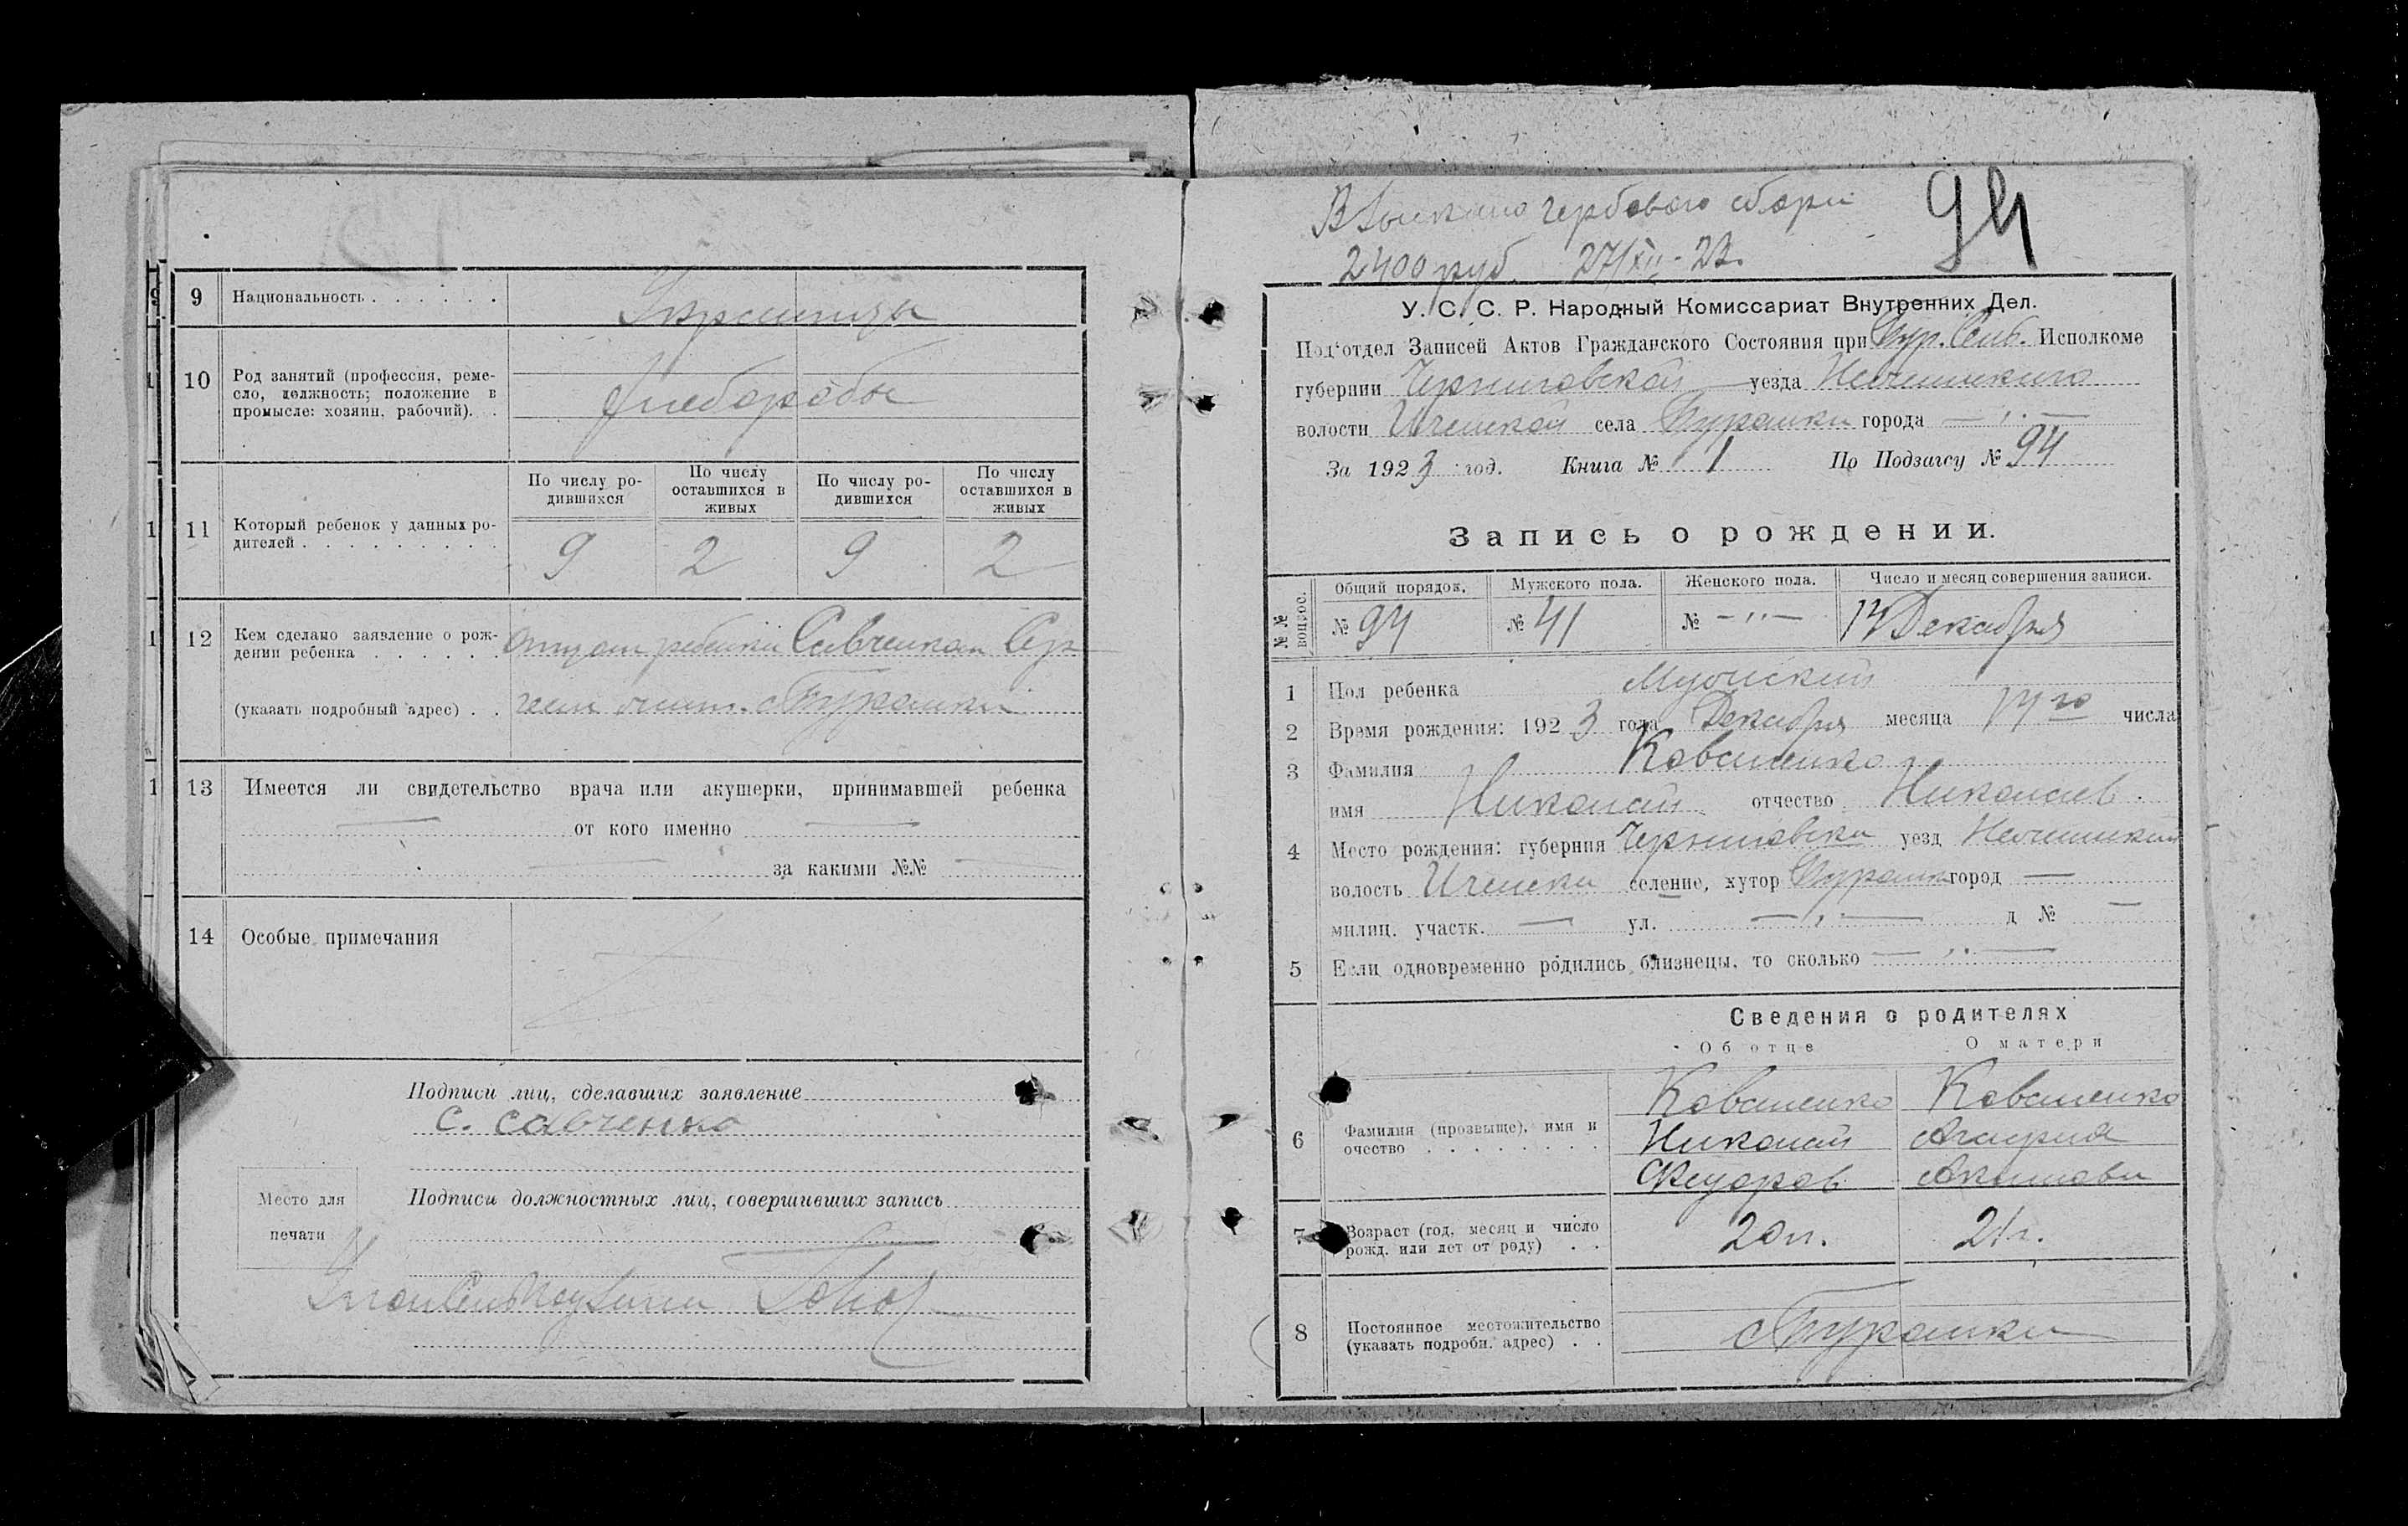 9 Национальность . . . . . .
Украинцы
10 Род занятий (профессия, реме-
сло, должность; положение в
промысле: хозяин, рабочий). .
Хлеборобы
По числу ро-
дившихся
По числу
оставшихся в
живых
По числу ро-
дившихся
По числу
оставшихся в
живых
11 Который ребенок у данных ро-
дителей . . . . . . . . .
9 2 9 2
12 Кем сделано заявление о рож-
дении ребенка . . . . . .
Отцом ребенка Савченком Сер
(указать подробный адрес) . .
геем с Бурамки
13 Имеется ли свидетельство врача или акушерки, принимавшей ребенка
— от кого именно —
— за какими №№ —
14 Особые примечания
Подписи лиц, сделавших заявление
С. Савченко
Место для
печати
Подписи должностных лиц, совершивших запись
Взыскано гербового сбора
2400 руб. 27/XII-23.
94
У. С. С. Р. Народный Комиссариат Внутренних Дел.
Под'отдел Записей Актов Гражданского Состояния при Бур. Сельс. Исполкоме
губернии Черниговской уезда Нежинского
волости Иченской села Бурамки города — „ —
За 1923 год. Книга № 1 По Подзагсу № 94
Запись о рождении.
№ № вопрос.
Общий порядок. Мужского пола. Женского пола. Число и месяц совершения записи.
№ 94 № 41 № - „ - Декабря
1 Пол ребенка Мужской
2 Время рождения: 1923 года Декабря месяца 14го числа
3 Фамилия Коваленко
имя Николай отчество Николаев.
4 Место рождения: губерния Черниговска уезд Нежинский
волость Иченска селение, хутор Бурамк город —
милиц. участк. — ул. — „ — д № —
5 Если одновременно родились близнецы, то сколько — „ —
Сведения о родителях
Об отце О матери
6 Фамилия (прозвыще), имя и
очество . . . . . . . .
Коваленко Коваленко
Николай
Федоров Акимова
7 Возраст (год, месяц и число
рожд. или лет от роду) . .
20л. 21г.
8 Постоянное местожительство
(указать подробн. адрес) . .
с Бурамки